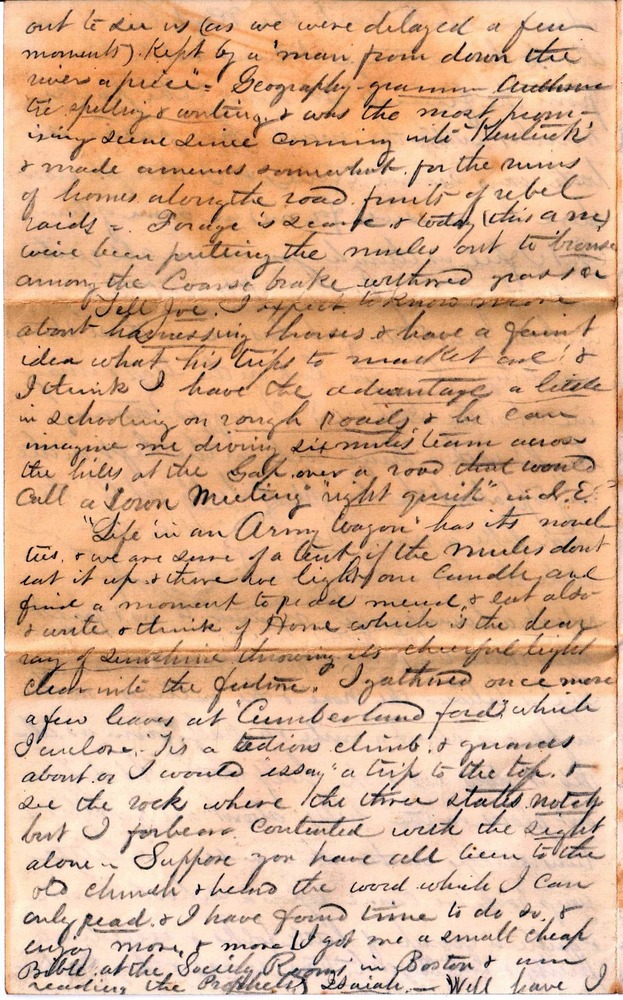 out to see us (as we were delayed a few
moments). Kept by a "man from down the
river a piece" = Geography - gramm - Arithme
tic spelling & writing, & was the most prom-
ising scene since coming into "Kentuck"
& made amends somewhat for the ruins
of homes along the road, fruits of rebel
raids =. Forage is scarce & today (this a m)
we've been putting the mules out to browse
among the coarse brake withered grass &c
Tell Joe. I expect to know more
about harnessing horses & have a faint
idea what his trips to market are! &
I think I have the advantage a little
in schooling on rough roads & he can
imagine me driving six mules team across
the hills at the Gap over a road that would
call a "Town Meeting" "right quick" in N.E.
"Life in an Army Wagon" has its novel
ties. & we are sure of a tent if the mules dont
eat it up. & there we light our candle and
find a moment to read mend, & eat also
& write & think of Home which is the dear
ray of sunshine throwing its cheerful light
clear into the future." I gathered once more
a few leaves at "Cumberland ford" which
I enclose. Tis a tedious climb. & guards
about. or I would "essay" a trip to the top. &
see the rock where the three states notch
but I forbear. Contented with the sight
alone - Suppose you have all been to the
old church & heard the word which I can
only read. & I have found time to do so. &
enjoy more & more I got me a small cheap
Bible at the Society Rooms in Boston & am
reading the Prophets Isaiah. - Well have I